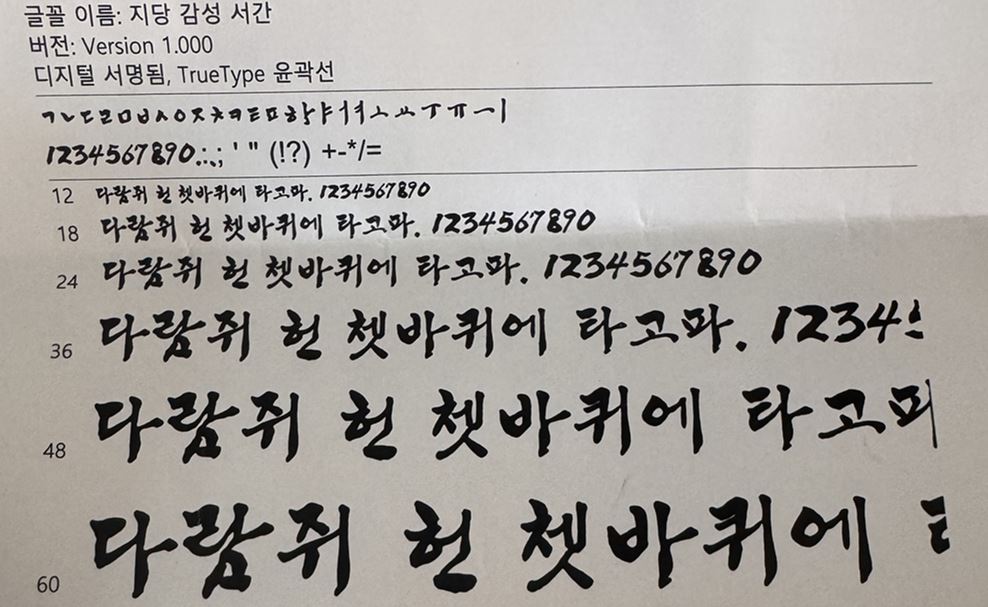 글꼴 이름: 지당 감성 서간
버전: Version 1.000
디지털 서명됨, TrueType 윤곽선
ㄱㄴㄷㄹㅁㅂㅅㅇㅈㅊㅋㅌㅍㅎㅏㅑㅓㅕㅗㅛㅜㅠㅡㅣ
1234567890.:,; ' " (!?) +-*/=
12 다람쥐 헌 쳇바퀴에 타고파. 1234567890
18 다람쥐 헌 쳇바퀴에 타고파. 1234567890
24 다람쥐 헌 쳇바퀴에 타고파. 1234567890
36 다람쥐 헌 쳇바퀴에 타고파. 1234
48 다람쥐 헌 쳇바퀴에 타고
60 다람쥐 헌 쳇바퀴에